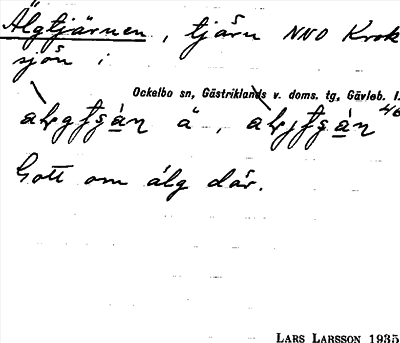 Älgtjärnen, tjärn NNO Krok
sjön i
Ockelbo sn, Gästriklands v. doms. tg, Gävleb. l.
46
ä,
Gott om älg där.
LARS LARSSON 1935